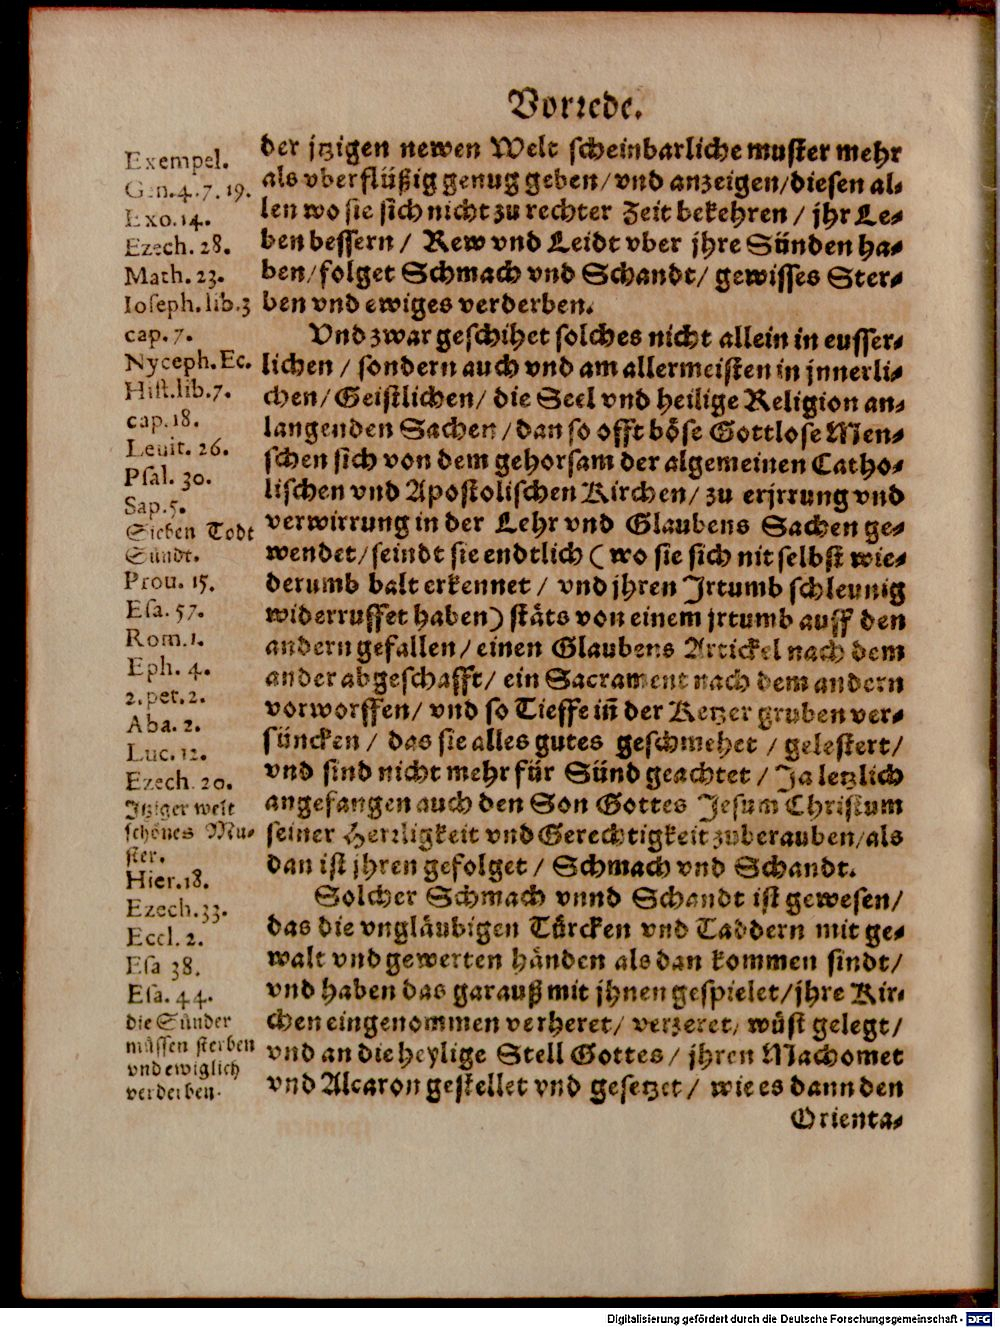 Vorrede.
Exempel.
Gen. 4. 7. 19.
Exo. 14.
Ezech. 28.
Math. 23.
Ioseph. lib. 3
cap. 7.
Nyceph. Ec.
Hist. lib. 7.
cap. 18.
Leuit. 26.
Psal. 30.
Sap. 5.
Sieben Todt
Sündt.
Prou. 15.
Esa. 57.
Rom. 1.
Eph. 4.
2. pet. 2.
Aba. 2.
Luc. 12.
Ezech. 20.
Jtziger welt
schönes Mu-
ster.
Hier. 18.
Ezech. 33.
Eccl. 2.
Esa 38.
Esa. 44.
die Sünder
müssen sterben
vnd ewiglich
verderben.
der jtzigen newen Welt scheinbarliche muster mehr
als vberflüßig genug geben/ vnd anzeigen/ diesen al-
len wo sie sich nicht zu rechter Zeit bekehren / jhr Le-
ben bessern / Rew vnd Leidt vber jhre Sünden ha-
ben/ folget Schmach vnd Schandt/ gewisses Ster-
ben vnd ewiges verderben.
Vnd zwar geschihet solches nicht allein in eusser-
lichen / sondern auch vnd am allermeisten in jnnerli-
chen/ Geistlichen/ die Seel vnd heilige Religion an-
langenden Sachen / dan so offt böse Gottlose Men-
schen sich von dem gehorsam der algemeinen Catho-
lischen vnd Apostolischen Kirchen/ zu erjrrung vnd
verwirrung in der Lehr vnd Glaubens Sachen ge-
wendet/ seindt sie endtlich ( wo sie sich nit selbst wie-
derumb balt erkennet / vnd jhren Jrtumb schleunig
widerruffet haben) stäts von einem jrtumb auff den
andern gefallen/ einen Glaubens Artickel nach dem
ander abgeschafft/ ein Sacrament nach dem andern
vorworffen/ vnd so Tieffe in̄ der Ketzer gruben ver-
süncken / das sie alles gutes geschmehet / gelestert/
vnd sind nicht mehr für Sünd geachtet / Ja letzlich
angefangen auch den Son Gottes Jesum Christum
seiner Herrligkeit vnd Gerechtigkeit zuberauben/ als
dan ist jhren gefolget / Schmach vnd Schandt.
Solcher Schmach vnnd Schandt ist gewesen/
das die vngläubigen Türcken vnd Taddern mit ge-
walt vnd gewerten händen als dan kommen sindt/
vnd haben das garauß mit jhnen gespielet/ jhre Kir-
chen eingenommen verheret/ verzeret, wüst gelegt/
vnd an die heylige Stell Gottes / jhren Machomet
vnd Alcaron gestellet vnd gesetzet / wie es dann den
Orienta-
Digitalisierung gefördert durch die Deutsche Forschungsgemeinschaft - DFG